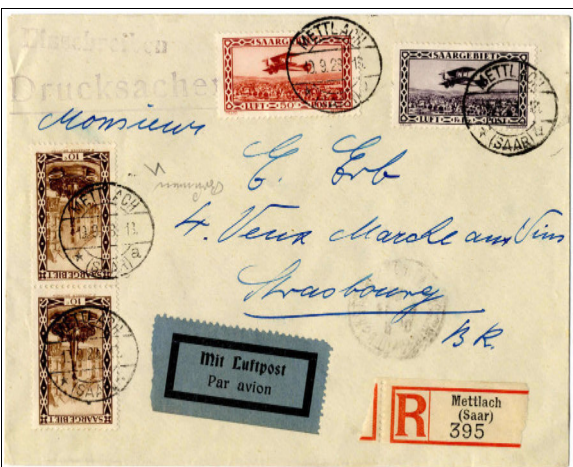 Einschreiben
Drucksache
SAARGEBIET
LUFT 50 POST
METTLACH
(SAAR)
SAARGEBIET
LUFT POST
METTLACH
(SAAR)
Monsieur
E. Erb
4. Vieux Marché aux Vins
Strasbourg
B.R.
10
SAARGEBIET
METTLACH
(SAAR) a
10
SAARGEBIET
METTLACH
(SAAR)
Mit Luftpost
Par avion
R
Mettlach
(Saar)
395